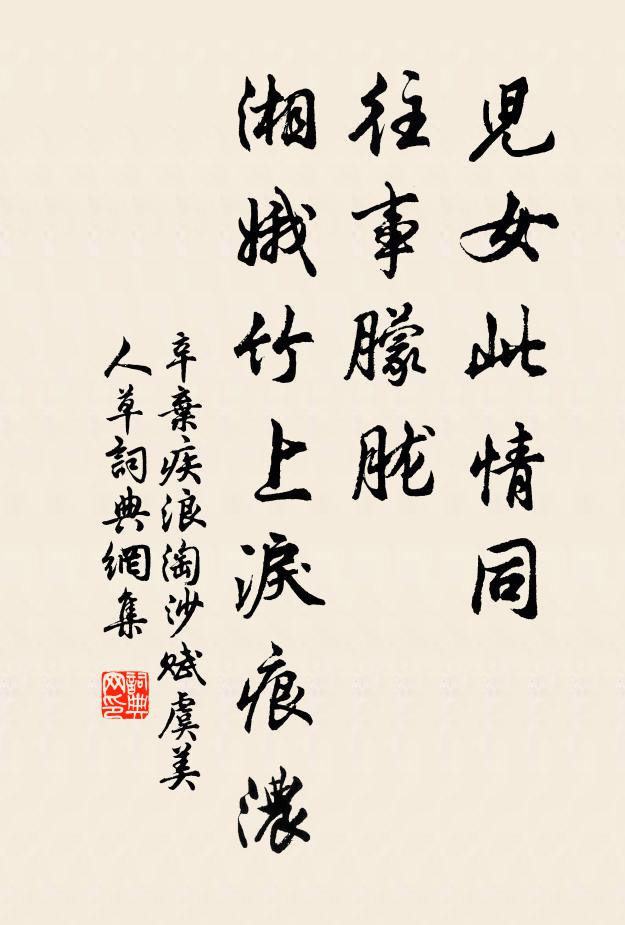 兒女此情同
往事朦朧
湘娥竹上淚痕濃
辛棄疾浪淘沙賦虞美
人草詞典網集
詞典
网印